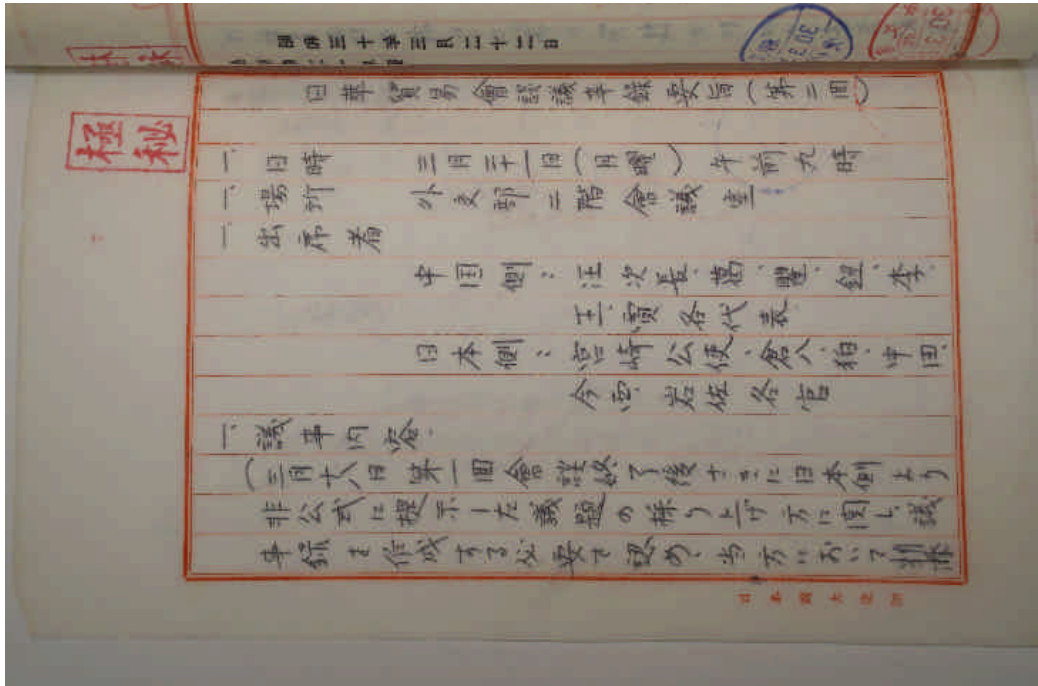 昭和三十年三月二十二日
極秘
日華貿易會談議事録要旨(第二回)
一、日時 三月二十一日(月曜)午前九時
一、場所 外交部二階會議室
一、出席者
中国側:汪次長、葛、瞿、鈕、李、
王、賈各代表
日本側:宮崎公使、倉八、狛、中田、
今西、岩佐各官
一、議事内容
(三月十八日第一回會談終了後さきに日本側より
非公式に提示した議題の採り上げ方に関し議
事録を作成する必要を認め、当方において別添
日本國大使館